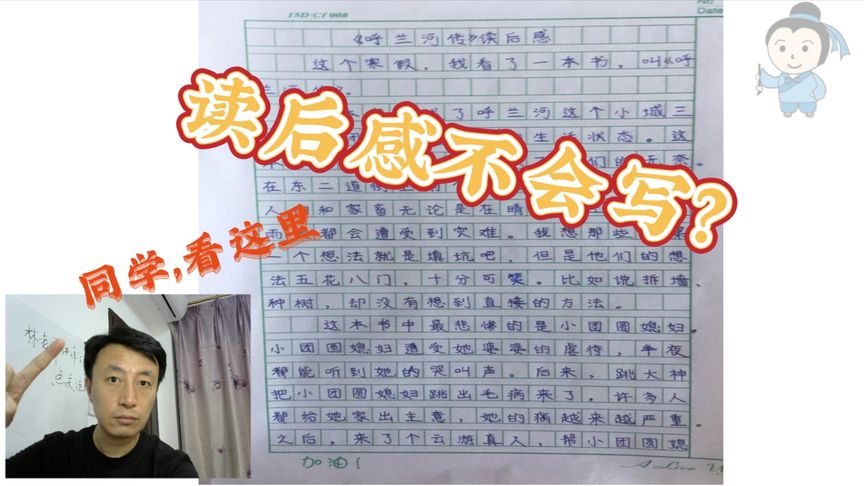 15D-C1008
No
Date
《呼兰河传》读后感
这个寒假，我看了一本书，叫《呼
了呼兰河这个小城三
生活状态。这
们的无奈。
在东二道街
人 和家畜无论是在晴
都会遭受到灾难。我想那些
一个想法就是填坑吧，但是他们的想
法五花八门，十分可笑。比如说拆墙、
种树，却没有想到直接的方法。
这本书中最悲惨的是小团圆媳妇。
小团圆媳妇遭受她婆婆的虐待，半夜
都能听到她的哭叫声。后来，跳大神
把小团圆媳妇跳出毛病来了，许多人
都给她家出主意，她的病越来越严重。
之后，来了个云游真人，帮小团圆媳
加油！
A Live
读后感不会写?
同学,看这里
林老
点关注